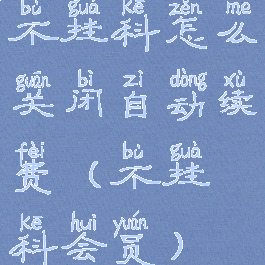 bù guà kē zěn me
不挂科怎么
guān bì zì dòng xù
关闭自动续
fèi bù guà
费（不挂
kē huì yuán
科会员）